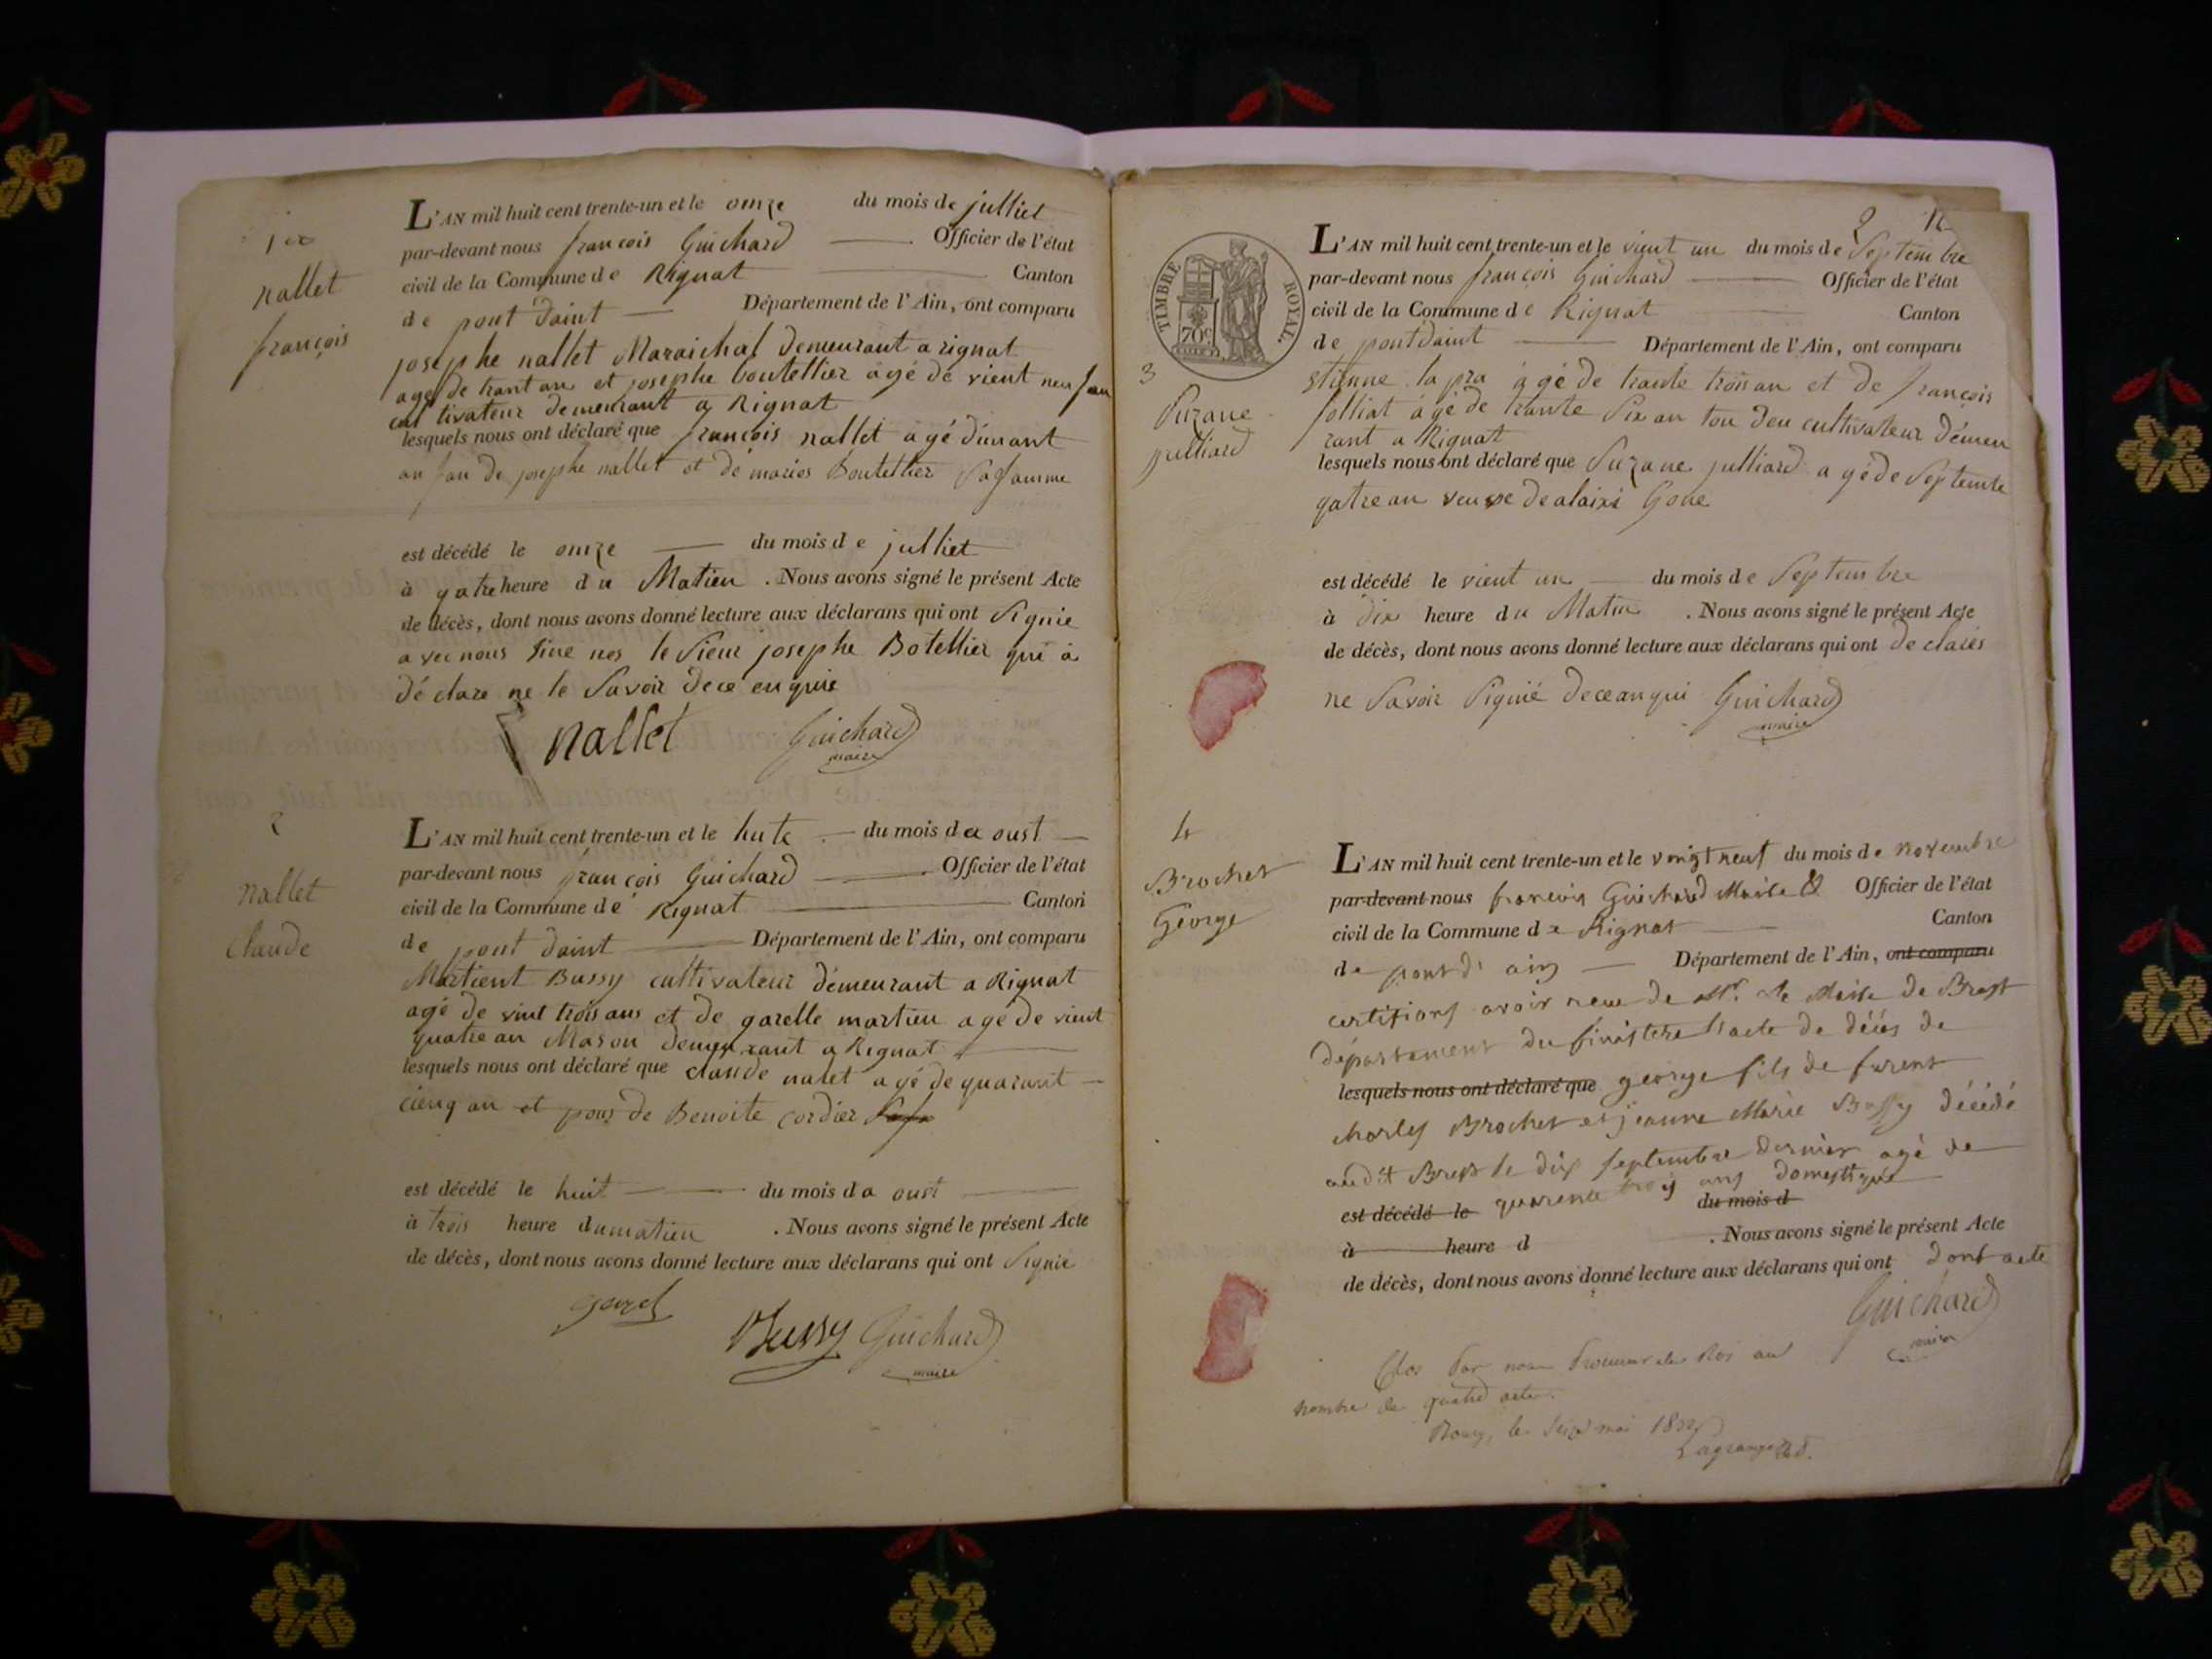 1er
nallet
françois
L'AN mil huit cent trente-un et le onze du mois de julliet
par-devant nous françois Guichard Officier de l'état
civil de la Commune de Rignat Canton
de pont daint Département de l'Ain, ont comparu
josephe nallet Maraichal demeurant a rignat
agé de trant an et josephe boutellier agé de vient neuf an
cultivateur demeurant a Rignat
lesquels nous ont déclaré que françois nallet agé
an fan de josephe nallet et de maries Boutellier Sa famme
est décédé le onze du mois de julliet
à qatre heure du Matien . Nous avons signé le présent Acte
de décès, dont nous avons donné lecture aux déclarans qui ont Signie
avec nous le Sieur josephe Botellier qui à
déclare ne le Savoir de ce enquie
nallet Guichard
maire
2
nallet
Claude
L'AN mil huit cent trente-un et le hute du mois da oust
par-devant nous françois Guichard Officier de l'état
civil de la Commune de Rignat Canton
de pont daint Département de l'Ain, ont comparu
Martient Bussy cultivateur démeurant a Rignat
agé de vint trois ans et de garelle martien age de vient
quatre an Mason demeurant a Rignat
lesquels nous ont déclaré que claude nalet agé de quarant
cienq an et pous de Benoite cordier
est décédé le huit du mois da oust
à trois heure du matien . Nous avons signé le présent Acte
de décès, dont nous avons donné lecture aux déclarans qui ont Signie
Bussy Guichard
maire
2
TIMBRE ROYAL
70c
3
Suzane
julliard
L'AN mil huit cent trente-un et le vient un du mois de Septembre
par-devant nous françois Guichard Officier de l'état
civil de la Commune de Rignat Canton
de pontdaint Département de l'Ain, ont comparu
stienne la pra agé de trante trois an et de françois
folliat agé de trante Six an tou deu cultivateur démeu
rant a Rignat
lesquels nous ont déclaré que Suzane julliard agé de Septente
qatre an veuve de alaixi Goue
est décédé le vient un du mois de Septembre
à dix heure du Matin . Nous avons signé le présent Acte
de décès, dont nous avons donné lecture aux déclarans qui ont de clares
ne Savoir Signié de ce anqui Guichard
maire
4
Brochet
George
L'AN mil huit cent trente-un et le vingt neuf du mois de novembre
par-devant nous françois Guichard Maire & Officier de l'état
civil de la Commune de Rignat Canton
de pont d'ain Département de l'Ain, ont comparu
certifions avoir reçu de Mr. le Maire de Brest
département du finistere l'acte de décès de
lesquels nous ont déclaré que george fils de furent
charles Brochet et jeanne Marie Bussy décédé
audit Brest le dix septembre dernier agé de
est décédé le quarente trois ans domestique du mois d
à heure d . Nous avons signé le présent Acte
de décès, dont nous avons donné lecture aux déclarans qui ont dont acte
Guichard
maire
Clos par nous Procureur du Roi au
nombre de quatre actes.
Bourg, le seize mai 1832
Lagrange